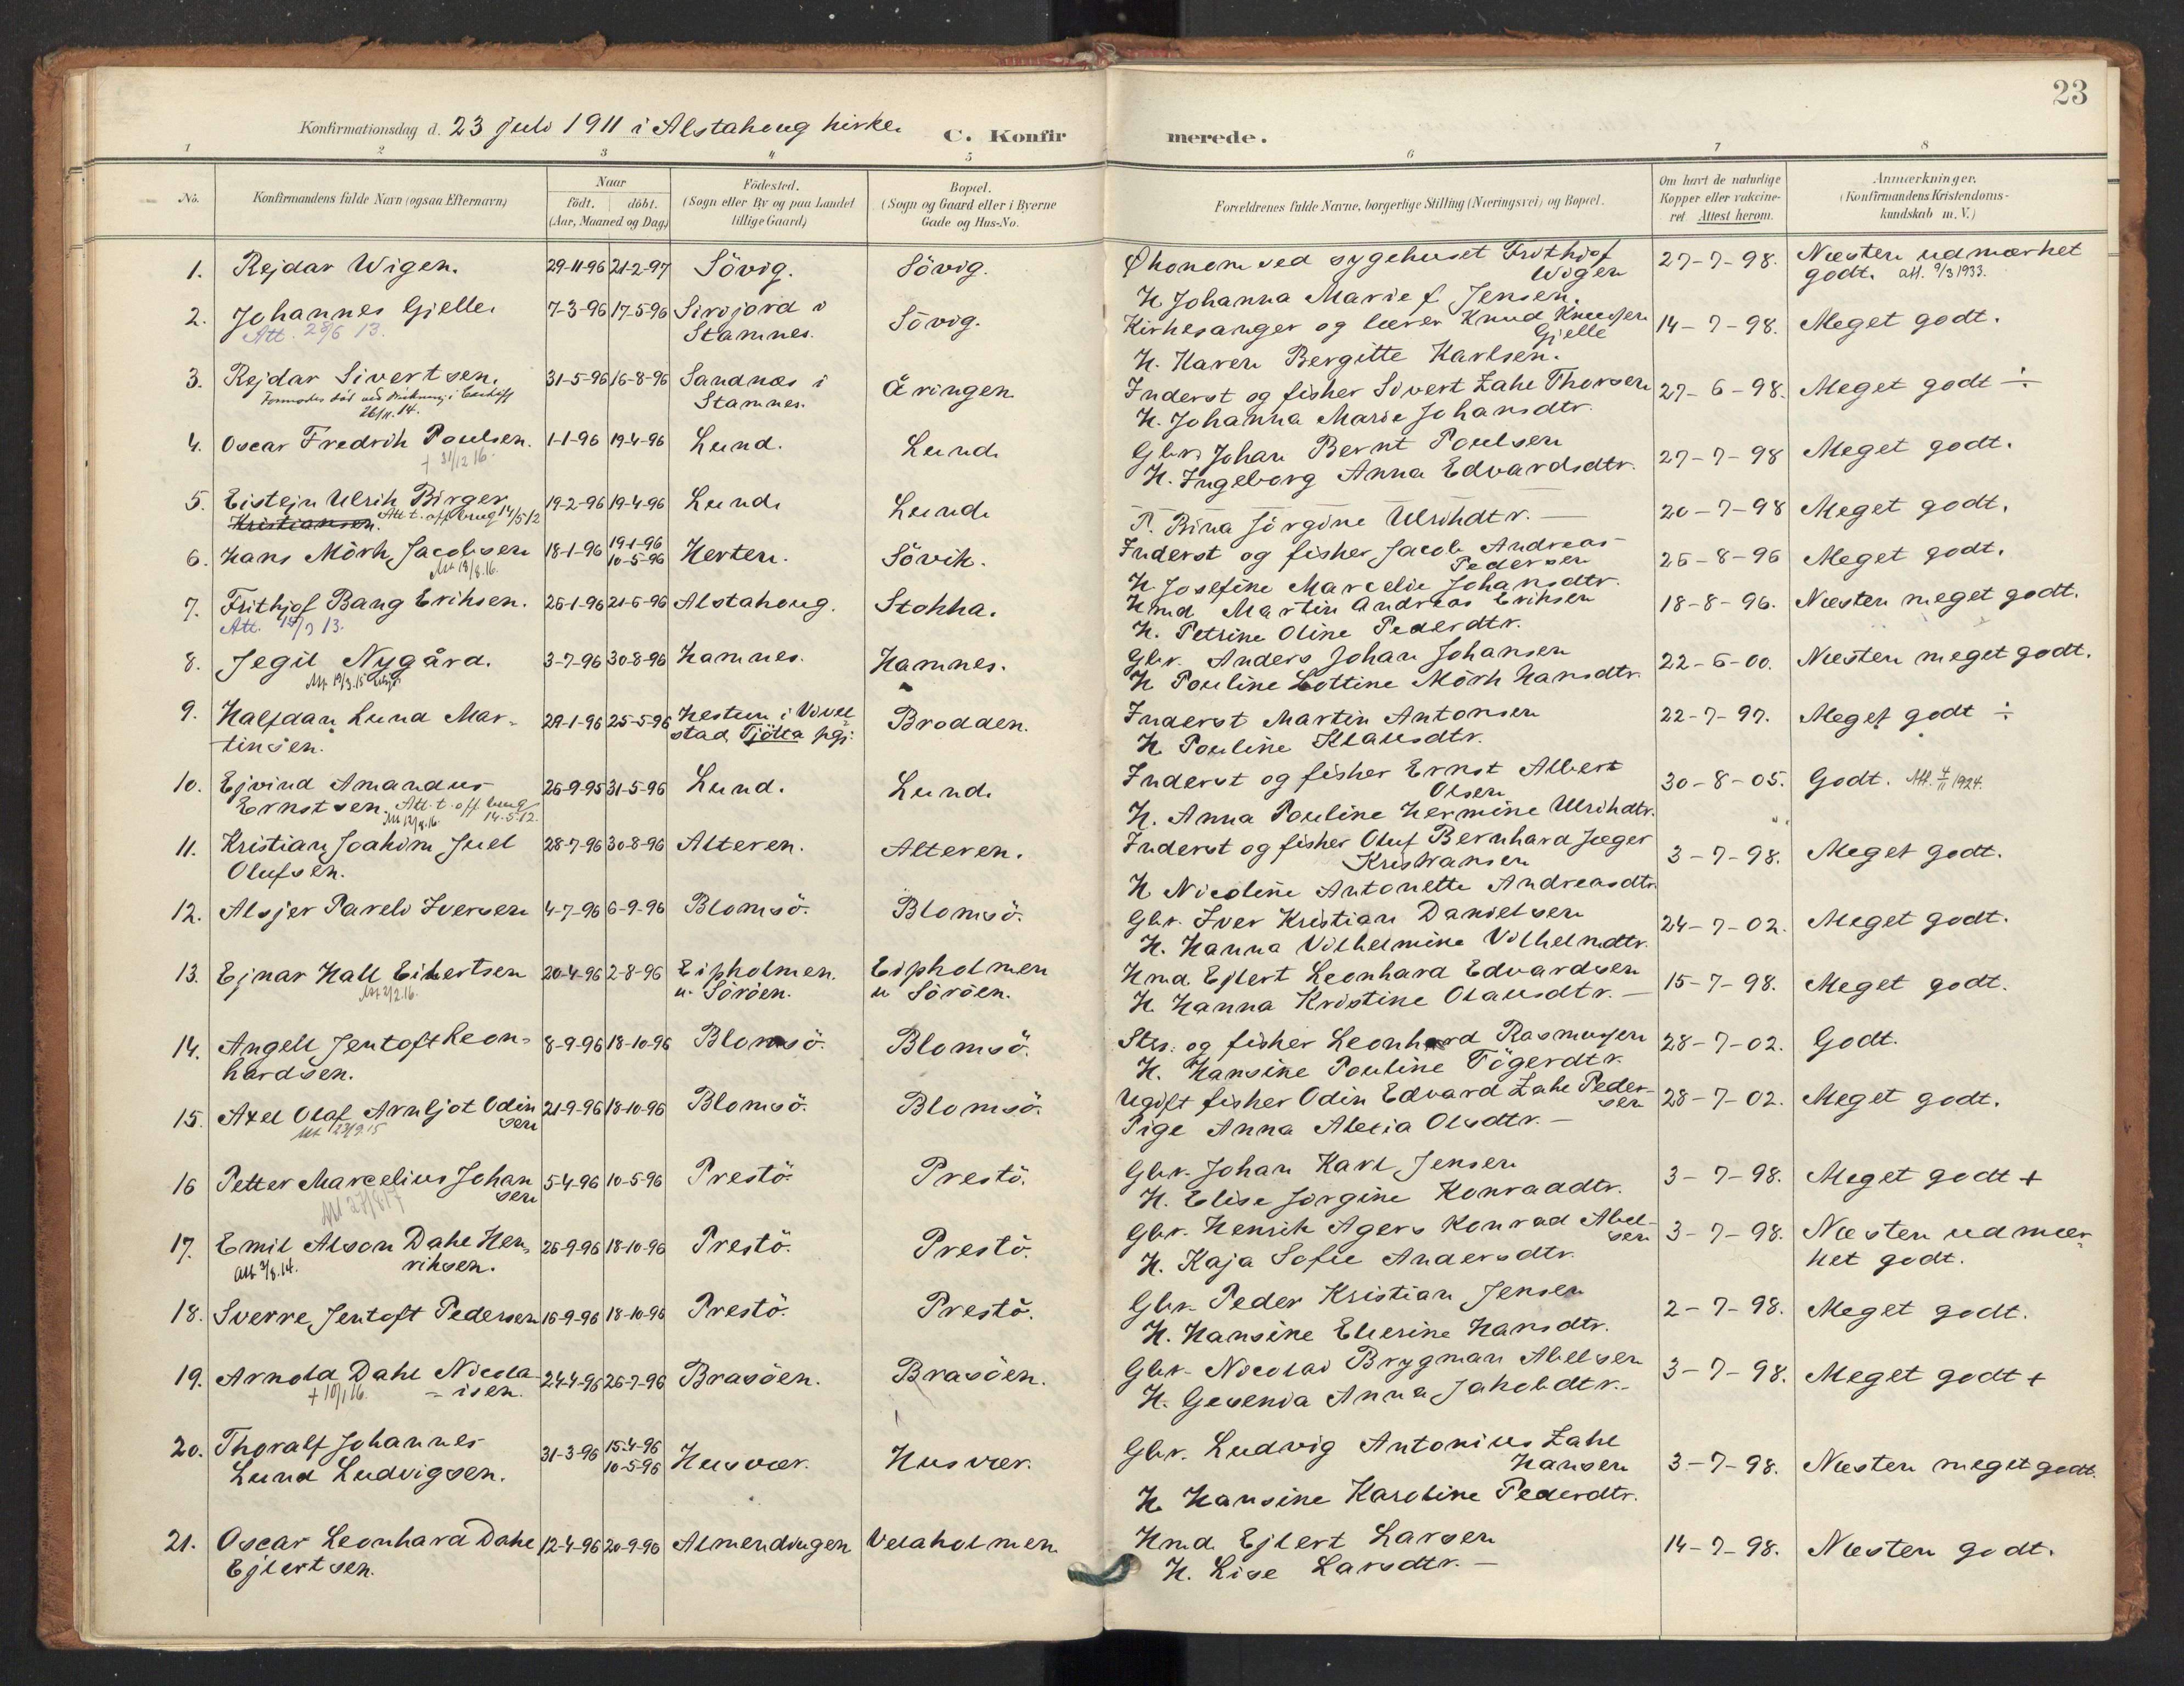 23
Konfirmationsdag d. 23 juli 1911 i Alstahoug kirke.
C. Konfirmerede.
1 2 3 4 5 6 7 8
No.
Konfirmandens fulde Navn (ogsaa Efternavn)
Naar
födt. döbt.
(Aar, Maaned og Dag)
Födested.
(Sogn eller By og paa Landet
tillige Gaard)
Bopæl.
(Sogn og Gaard eller i Byerne
Gade og Hus-No.
Forældrenes fulde Navne, borgerlige Stilling (Næringsvei) og Bopæl.
Om havt de naturlige
Kopper eller vakcine-
ret Attest herom.
Anmærkninger.
(Konfirmandens Kristendoms-
kundskab m. V.)
1. Rejdar Wigen. 29-11-96 21-2-97 Sövig. Sövig. Økonom ved sygehuset Frithjof 27-7-98. Næsten udmærket
Wigen godt. att. 9/3 1933.
H. Johanna Marie f. Jensen.
2. Johannes Gjelle. 7-3-96 17-5-96 Sirijord i Sövig. Kirkesanger og lærer Knud Knudsen 14-7-98. Meget godt.
Att. 28/6 13. Stamnes. Gjelle
H. Karen Bergitte Karlsen.
3. Rejdar Sivertsen. 31-5-96 16-8-96 Sandnes i Åringen Inderst og fisker Sivert Zahl Thorsen 27-6-98. Meget godt ÷
Formodes död ved drukning i
26/11.14. Stamnes. H. Johanna Marie Johansdtr.
4. Oscar Fredrik Poulsen. 1-1-96 19-4-96 Lund. Lund. Gbr. Johan Bernt Poulsen 27-7-98 Meget godt.
+ 31/12 16. H. Ingeborg Anna Edvardsdtr.
5. Eistejn Ulrik Birger 19-2-96 19-4-96 Lund. Lund. — — — 20-7-98 Meget godt.
Kristiansen. Att t. off. brug 14/5 12 P. Rina Jörgine Ulrikdtr. —
6. Hans Mörk Jacobsen 18-1-96 19-1-96 Herten. Sövik. Inderst og fisker Jacob Andreas 26-8-96 Meget godt.
Att 18/8.16. 10-5-96 Pedersen
H. Josefine Marcelie Johansdtr.
7. Frithjof Bang Eriksen. 26-1-96 21-6-96 Alstahoug. Stokka. Hmd. Martin Andreas Eriksen 18-8-96. Næsten meget godt.
Att. 13. H. Petrine Oline Pederdtr.
8. Jegil Nygård. 3-7-96 30-8-96 Hamnes. Hamnes. Gbr. Anders Johan Johansen 22-6-00. Næsten meget godt.
Att 19/3.15 H. Pouline Lottine Mörk Hansdtr.
9. Halfdan Lund Mar- 29-1-96 25-5-96 Hestun i Vivel- Brodden. Inderst Martin Antonsen 22-7-97. Meget godt ÷
tinsen. stad, Tjötta pgj: H. Pouline Klausdtr.
10. Ejvind Amandus 26-9-95 31-5-96 Lund. Lund. Inderst og fisker Ernst Albert 30-8-05. Godt. Att. 4/11 1924.
Ernstsen. Att t. off brug 14.5.12. Olsen
Att 12/8.16. H. Anna Pouline Hermine Ulrikdtr.
11. Kristian Joakim Juel 28-7-96 30-8-96 Alteren. Alteren. Inderst og fisker Oluf Bernhard Jæger 3-7-98. Meget godt.
Olufsen. Kristiansen
H. Nicoline Antonette Andreasdtr.
12. Alsjer Pareli Iversen 4-7-96 6-9-96 Blomsö. Blomsö. Gbr. Iver Kristian Danielsen 24-7-02. Meget godt.
H. Hanna Vilhelmine Vilhelmdtr.
13. Ejnar Hall Eilertsen 20-4-96 2-8-96 Eipholmen. Eipholmen Hmd. Ejlert Leonhard Edvardsen 15-7-98. Meget godt.
Att 2/2.16. u. Söröen. u Söröen. H. Hanna Kristine Olausdtr. —
14. Angell Jentoft Leon- 8-9-96 18-10-96 Blomsö. Blomsö. Strs. og fisker Leonhard Rasmussen 28-7-02. Godt.
hardsen. H. Hansine Pouline Tögerdtr.
15. Axel Olaf Arnljot Odin 21-9-96 18-10-96 Blomsö. Blomsö. Ugift fisker Odin Edvard Zahl Peder- 28-7-02. Meget godt.
sen sen
Att 23/9 15 Pige Anna Alexia Olsdtr. —
16 Petter Marcelius Johan 5-4-96 10-5-96 Prestö. Prestö. Gbr. Johan Karl Jensen 3-7-98. Meget godt +
sen
Att 27/8 17 H. Elise Jörgine Konraddtr.
17. Emil Alson Dahl Hen- 26-9-96 18-10-96 Prestö. Prestö. Gbr. Henrik Agers Konrad Abel- 3-7-98. Næsten udmær-
Att 3/8.14. riksen. sen ket godt.
H. Kaja Sofie Andersdtr.
18. Sverre Jentoft Pedersen 16-9-96 18-10-96 Prestö. Prestö. Gbr. Peder Kristian Jensen 2-7-98. Meget godt.
H. Hansine Elierine Hansdtr.
19. Arnold Dahl Nicola 24-4-96 26-7-96 Brasöen. Brasöen. Gbr. Nicolai Brygman Abelsen 3-7-98. Meget godt +
+ 10/1 16. -isen. H. Gesenia Anna Jakobdtr.-
20. Thoralf Johannes 31-3-96 15-4-96 Husvær. Husvær. Gbr. Ludvig Antonius Zahl 3-7-98. Næsten meget godt.
Lund Ludvigsen. 10-5-96 Hansen
H. Hansine Karoline Pederdtr.
21. Oscar Leonhard Dahl 12-4-96 20-9-96 Almendingen Velaholmen Hmd. Ejlert Larsen 14-7-98. Næsten godt.
Ejlertsen. H. Lise Larsdtr. —